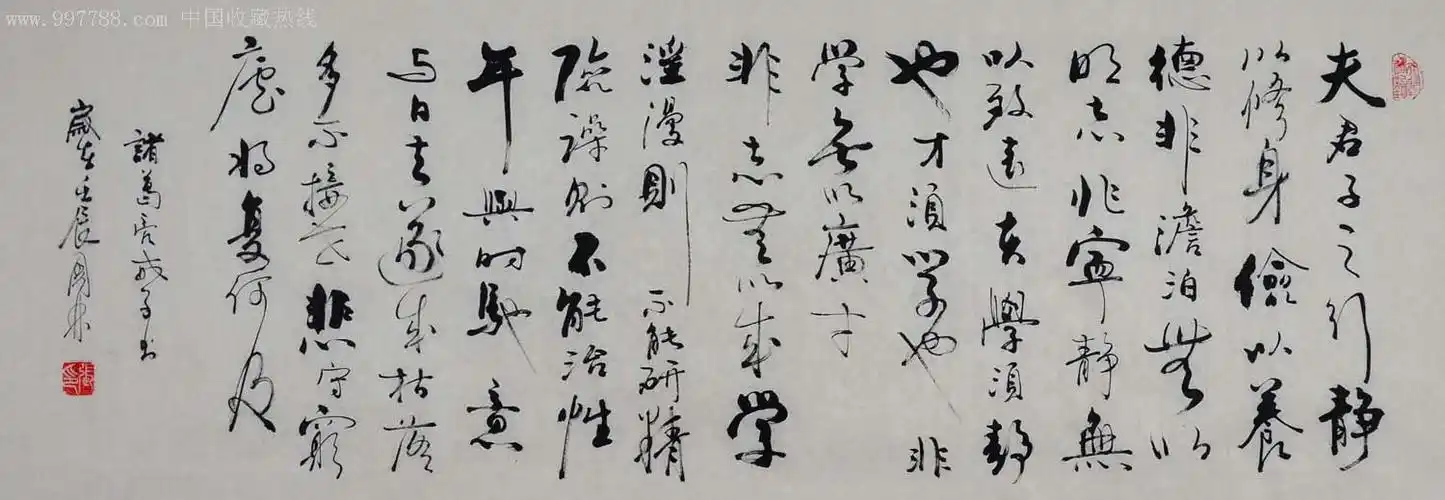 www.997788.com 中国收藏热线
夫君子之行静
以修身儉以養
德非澹泊無以
明志非寧静無
以致遠夫學須静
也才須學也非
学無以廣才
非志無以成学
淫漫則不能研精
險躁则不能治性
年與时馳意
与日去遂成枯落
多不接世悲守窮
廬将复何及
諸葛亮戒子书
歲在壬辰周